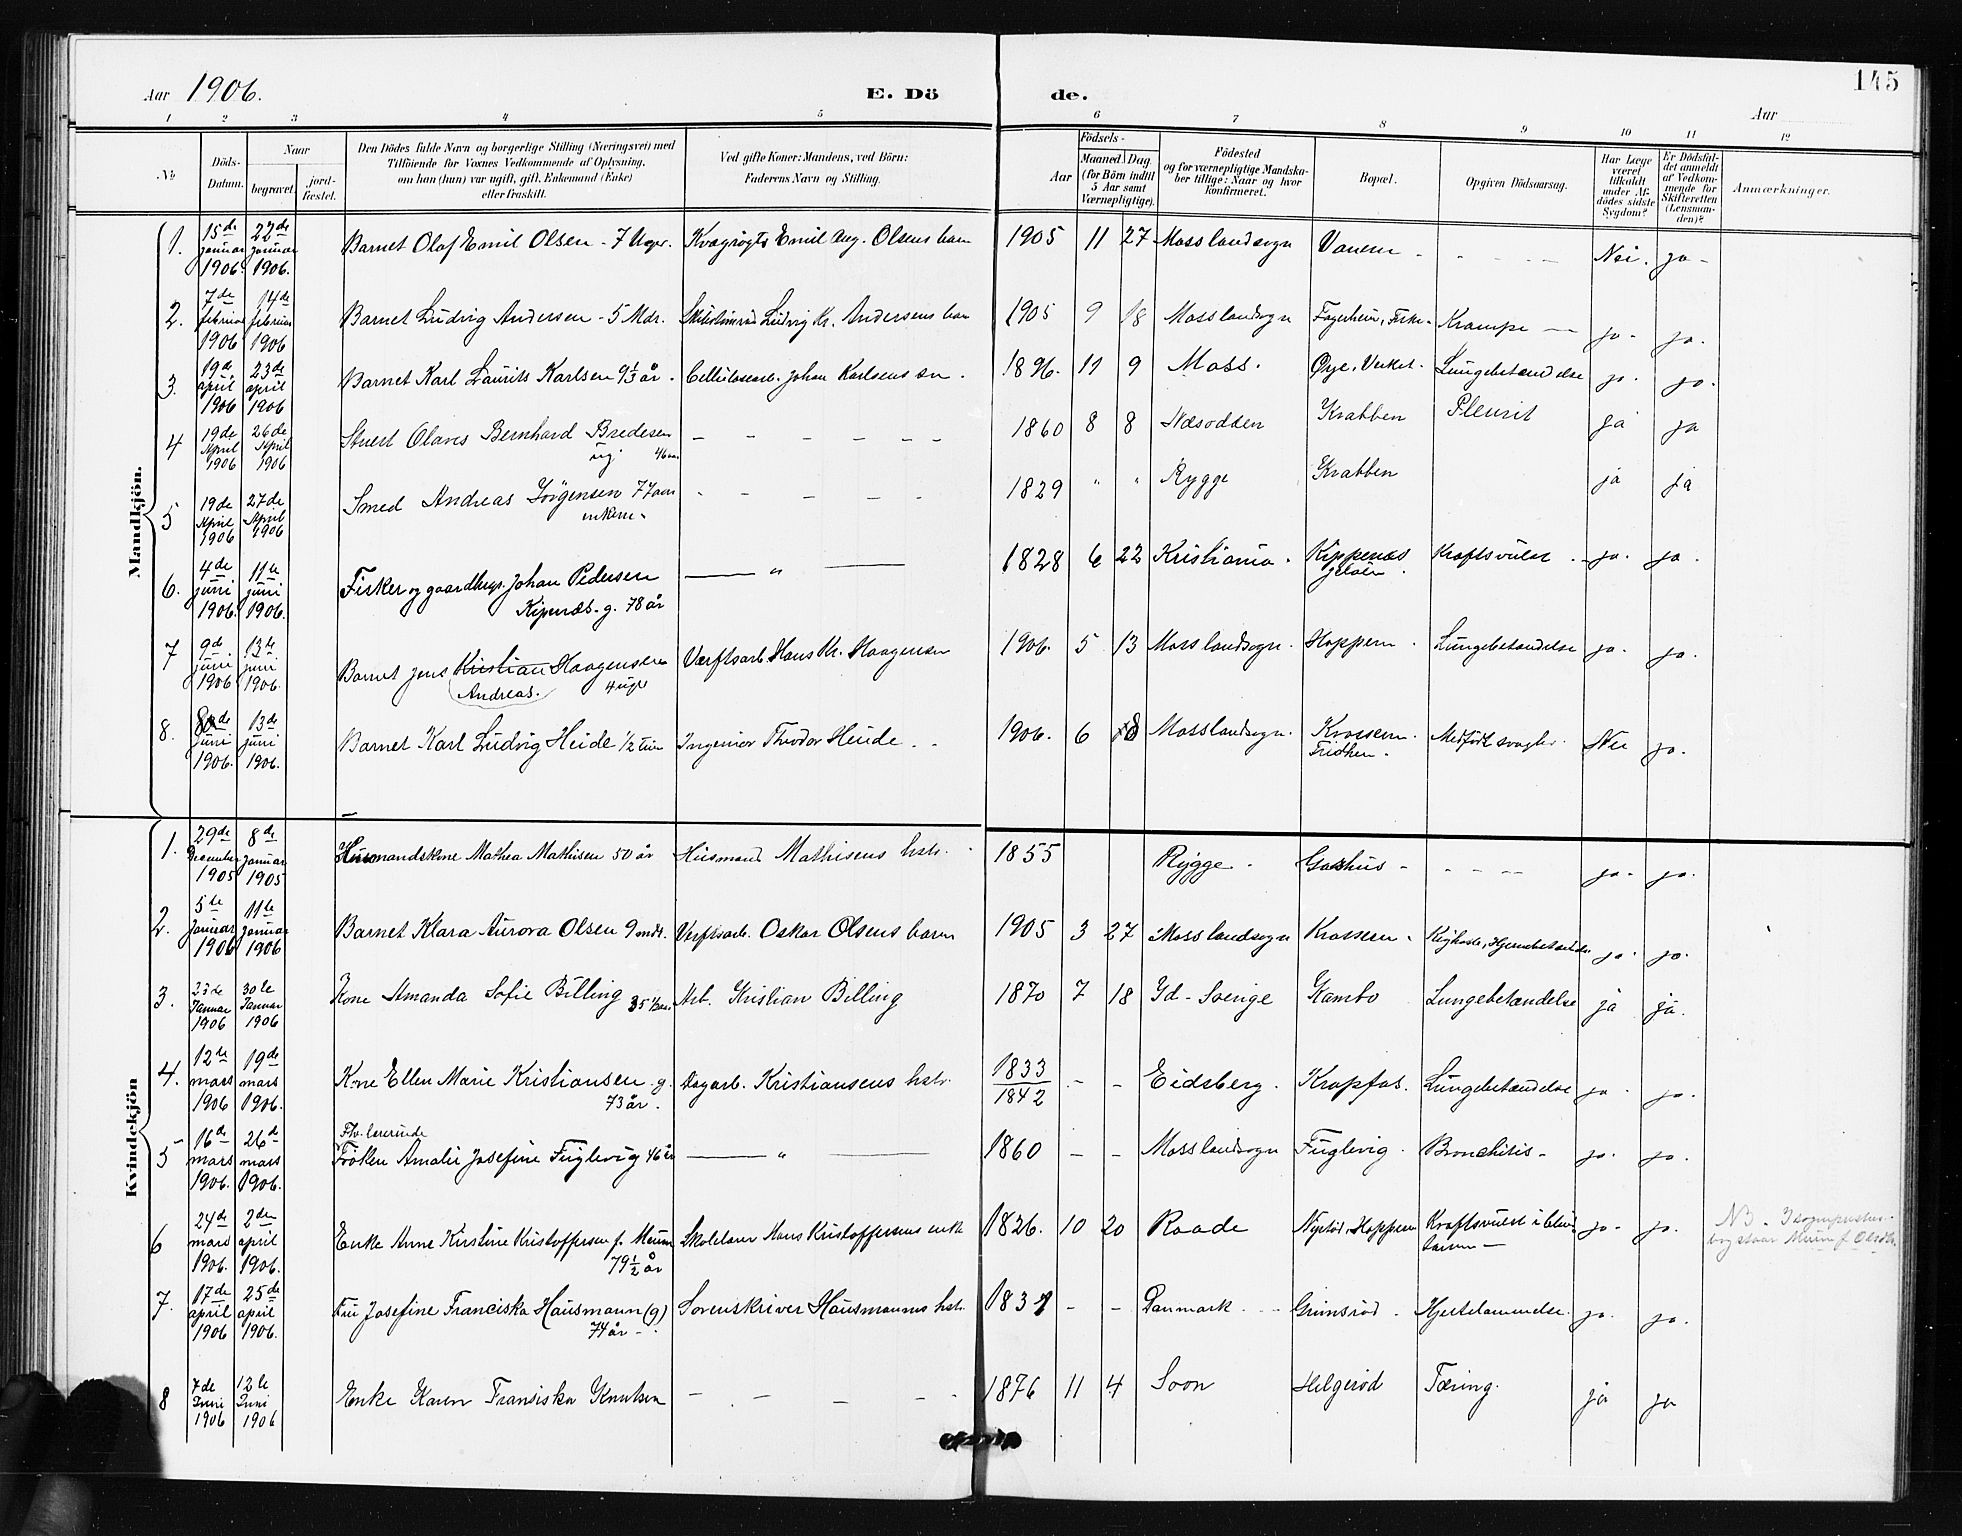 145
Aar 1906. E. Dö de. Aar
1 2 3 4 5 6 7 8 9 10 11 12
№ Döds-Datum. Naar begravet. jord-fæstet. Den Dödes fulde Navn og borgerlige Stilling (Næringsvei) med Tilföiende for Voxnes Vedkommende af Oplysning, om han (hun) var ugift, gift, Enkemand (Enke) eller fraskilt. Ved gifte Koner: Mandens, ved Börn: Faderens Navn og Stilling. Födsels- Aar Maaned Dag (for Börn indtil 5 Aar samt Værnepligtige). Födested og for værnepligtige Mandskaber tillige: Naar og hvor konfirmeret. Bopæl. Opgiven Dödsaarsag. Har Læge været tilkaldt under Afdödes sidste Sygdom? Er Dödsfaldet anmeldt af Vedkommende for Skifteretten (Lensmanden)? Anmærkninger.
Mandkjön.
1. 15de januar 1906. 22de januar 1906. Barnet Olaf Emil Olsen - 7 Uger. Kvægrögts Emil Aug. Olsens barn 1905 11 27 Moss landsogn Vanem - Nei. ja -
2. 7de februar 1906 14de februar 1906 Barnet Ludvig Andersen - 5 Mdr. Ludvig Kr. Andersens barn 1905 9 18 Moss landsogn Fagerheim, Krampe - ja - ja.
3. 19de april 1906 23de april 1906 Barnet Karl Laurits Karlsen 9 1/3 år. Cellulosearb. Johan Karlsens sn. 1896. 11 9 Moss. Øye, Verket. Lungebetændelse ja. ja.
4 19de April 1906 26de April 1906 Stuert Olaves Bernhard Bredesen ug 46 aar - - - - - - 1860 8 8 Næsodden Krabben Pleurit ja ja
5 19de April 1906 27de April 1906 Smed Andreas Jörgensen 77 aar enkem. - - - - - 1829 " " Rygge Krabben ja ja
6. 4de juni 1906. 11te juni 1906. Fisker og gaardbrugs. Johan Pedersen Kipenæs. g. 78 år — " — 1828 6 22 Kristiania. Kippenæs Jeløen. Kræftsvulst. - ja. ja.
7 9de. juni 1906 13de juni 1906. Barnet Jens Kristian Haagensen (Andreas.) 4 uger Værftsarb. Hans Kr. Haagensen 1906. 5 13 Moss landsogn. Hoppern. Lungebetændelse ja. ja.
8. 8de juni 1906. 13de juni 1906. Barnet Karl Ludvig Heide 1/2 time Ingeniør Theodor Heide. 1906. 6 8 Moss landsogn. Krossern. Medfødt svaghed. Nei ja.
Kvindekjön
1. 29de December 1905 8de januar 1905 Husmandskone Mathea Mathisen 50 år Husmand Mathisens hstr. 1855 Rygge - Gashus - - - - - ja - ja.
2. 5te januar 1906 11te januar 1906 Barnet Klara Aurora Olsen 9 mdr. Verftsarb. Oskar Olsens barn 1905 3 27 Moss landsogn Krossern. Kighoste, Hjernebetændelse ja. ja.
3. 23de Januar 1906 30te Januar 1906 Kone Amanda Sofie Billing 35 1/2 aar. Arb. Kristian Billing 1870 7 18 Id - Sverige Kambo Lungebetændelse ja ja.
4. 12te mars 1906 19de mars 1906. Kone Ellen Marie Kristiansen g. 73 år. Dagarb. Kristiansens hstr. 1833 1842 - - Eidsberg. Kropfos. Lungebetændelse ja. ja.
5 16de mars 1906. 26de mars 1906. Fhv. lærerinde Fröken Amalie Josefine Fuglevig 46 år — " — 1860 - - Moss landsogn Fuglevig. Bronchitis - ja. ja.
6 24de mars 1906. 2den april 1906. Enke Anne Kirstine Kristoffersen f. 79 1/2 år Skolelærer Hans Kristoffersens enke 1826. 10 20 Raade Nyrød, Hoppern Kræftsvulst i - ja - ja. NB.
7. 17de april 1906 25de april 1906. Fru Josefine Franciska Hausmann (g) 74 år - Sorenskriver Hausmanns hstr. 1831 - - Danmark. - Grimsrød - Hjertelammelse. ja. ja.
8 7de Juni 1906 12te Juni 1906 Enke Karen Fransiska Knutsen - - - - 1876 11 4 Soon Helgerød Tæring. ja ja